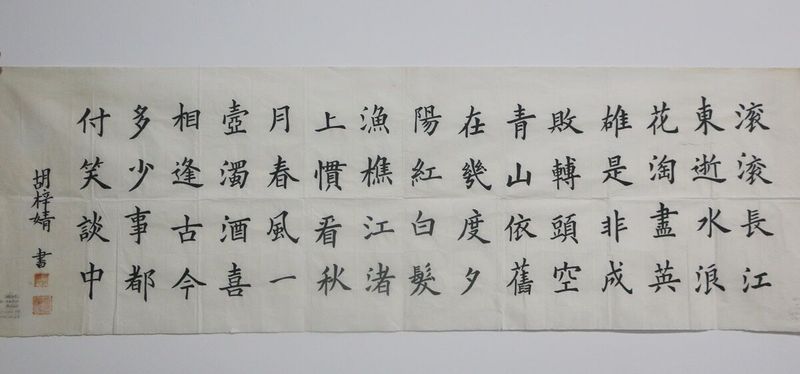 滚滚長江
東逝水浪
花淘盡英
雄是非成
敗轉頭空
青山依舊
在幾度夕
陽紅白髮
漁樵江渚
上慣看秋
月春風一
壺濁酒喜
相逢古今
多少事都
付笑談中
胡梓婧 書